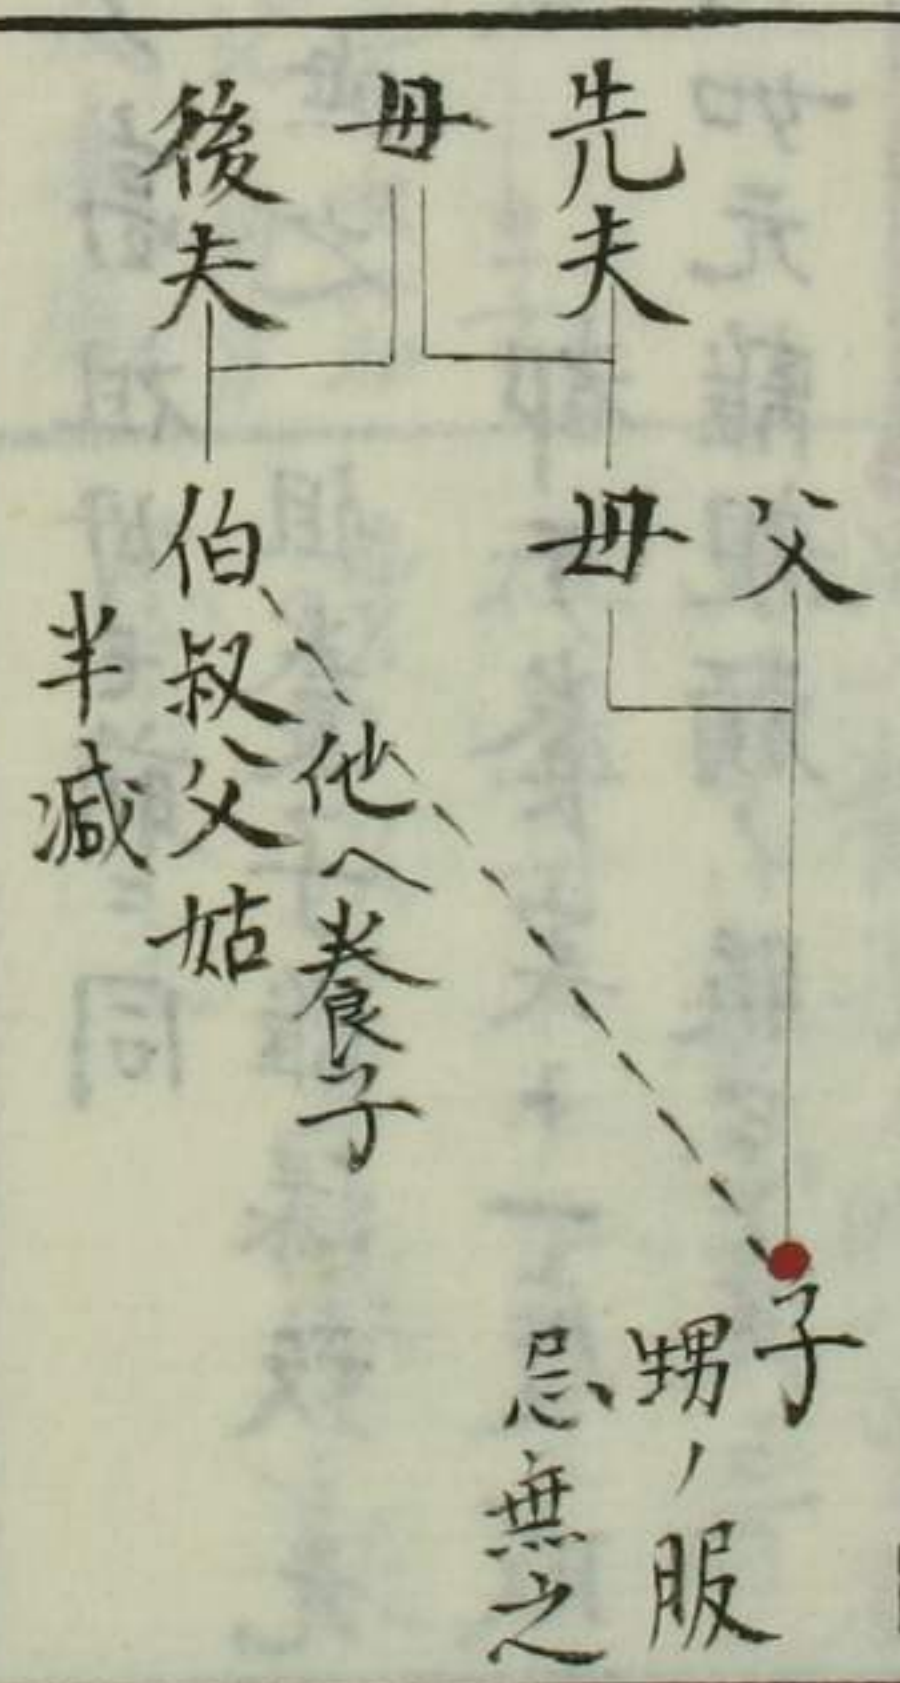 先夫
母
後夫
父
母
伯叔父姑
半減
他ヘ養子
子
甥ノ服
忌無之